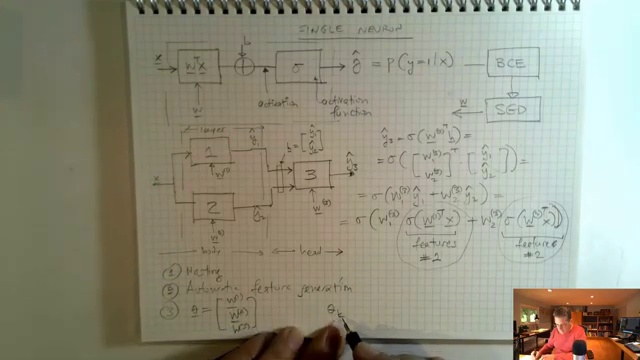 SINGLE NEURON
x wᵀx b σ ŷ = P(y=1|x) BCE
w activation activation function w SED
1 layer ŷ₁ h = [ŷ₁ ŷ₂]
x 1 w⁽¹⁾ 3 ŷ₃ w⁽³⁾
2 w⁽²⁾ ŷ₂
ŷ₃ = σ(w⁽³⁾ᵀh) =
= σ([w₁⁽³⁾ w₂⁽³⁾]ᵀ [ŷ₁ ŷ₂]) =
= σ(w₁⁽³⁾ŷ₁ + w₂⁽³⁾ŷ₂) =
= σ(w₁⁽³⁾ σ(w⁽¹⁾ᵀx) + w₂⁽³⁾ σ(w⁽²⁾ᵀx))
features #2 features #2
body head
① Nesting
② Automatic feature generation
③ θ = [w⁽¹⁾ w⁽²⁾ w⁽³⁾] θₖ